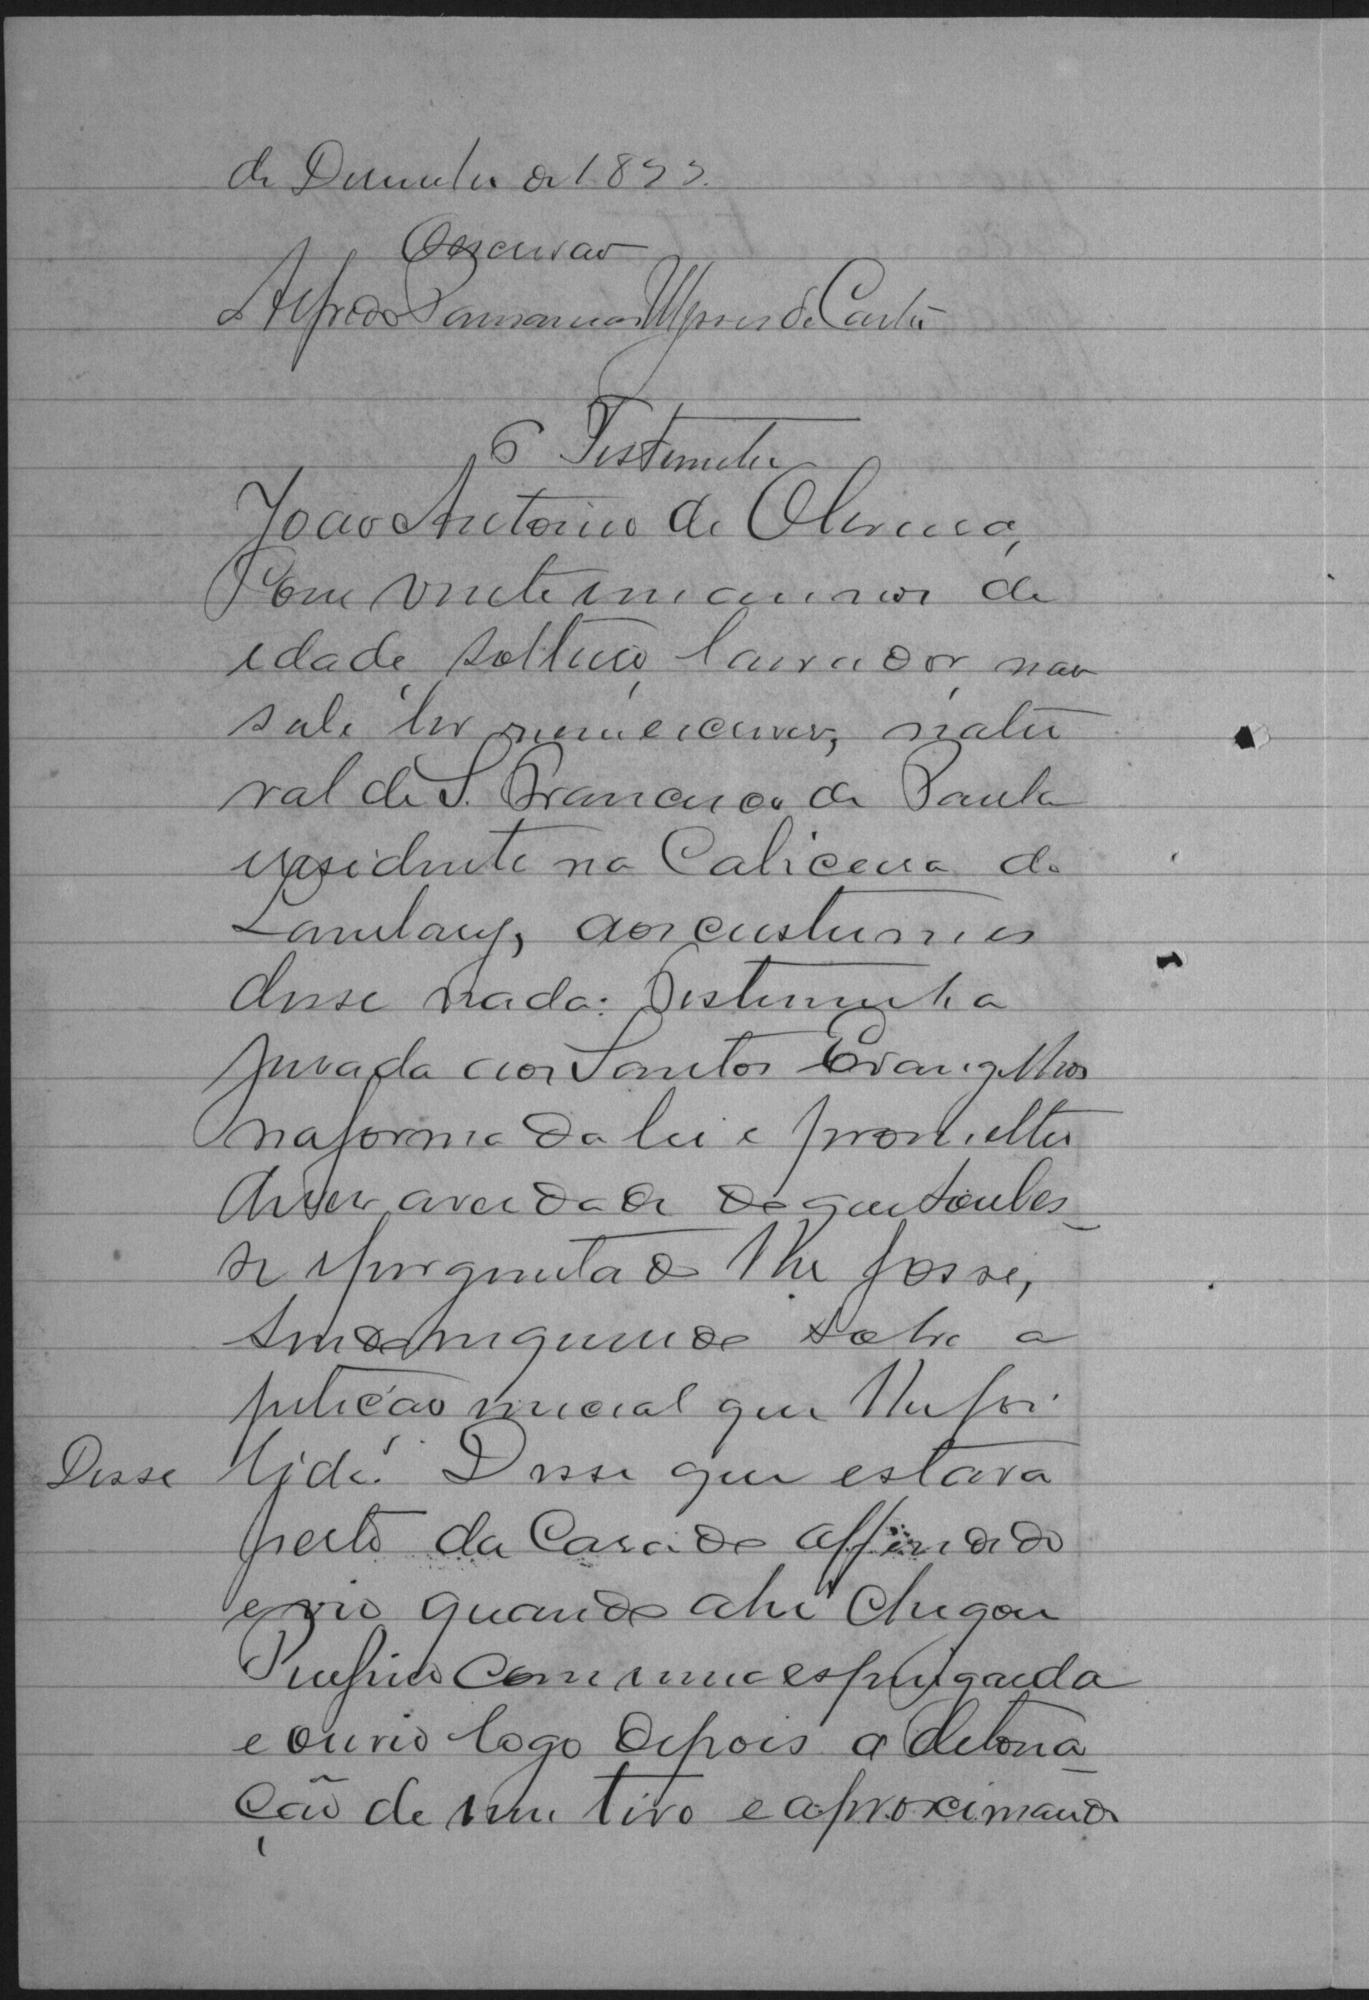 de Dezembro de 1893.
O escrivão
Alfredo de Castro
6 Testemunha
João Antonio de Oliveira,
com vinte um annos de
idade, solteiro, lavrador, não
sabe ler nem escrever, natu
ral de S. Francisco de Paula
residente na Cabiceira do
aos custumes
disse nada: Testemunha
jurada aos Santos Evangelhos
na forma da lei e prometteu
diser a verdade do que soubes
se e perguntado lhe fosse,
sendo inquerido sobre a
petição inicial que lhe foi
Disse lida. Disse que estava
perto da Casa do offendido
e vio quando ahi chegou
Porfirio com uma espingarda
e ouvio logo depois a detona
ção de um tiro e aproximando